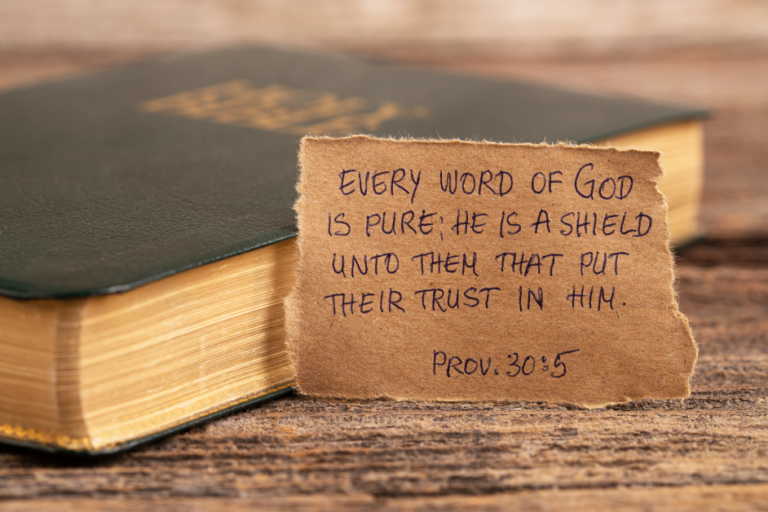 EVERY WORD OF GOD
IS PURE; HE IS A SHIELD
UNTO THEM THAT PUT
THEIR TRUST IN HIM.
PROV. 30:5